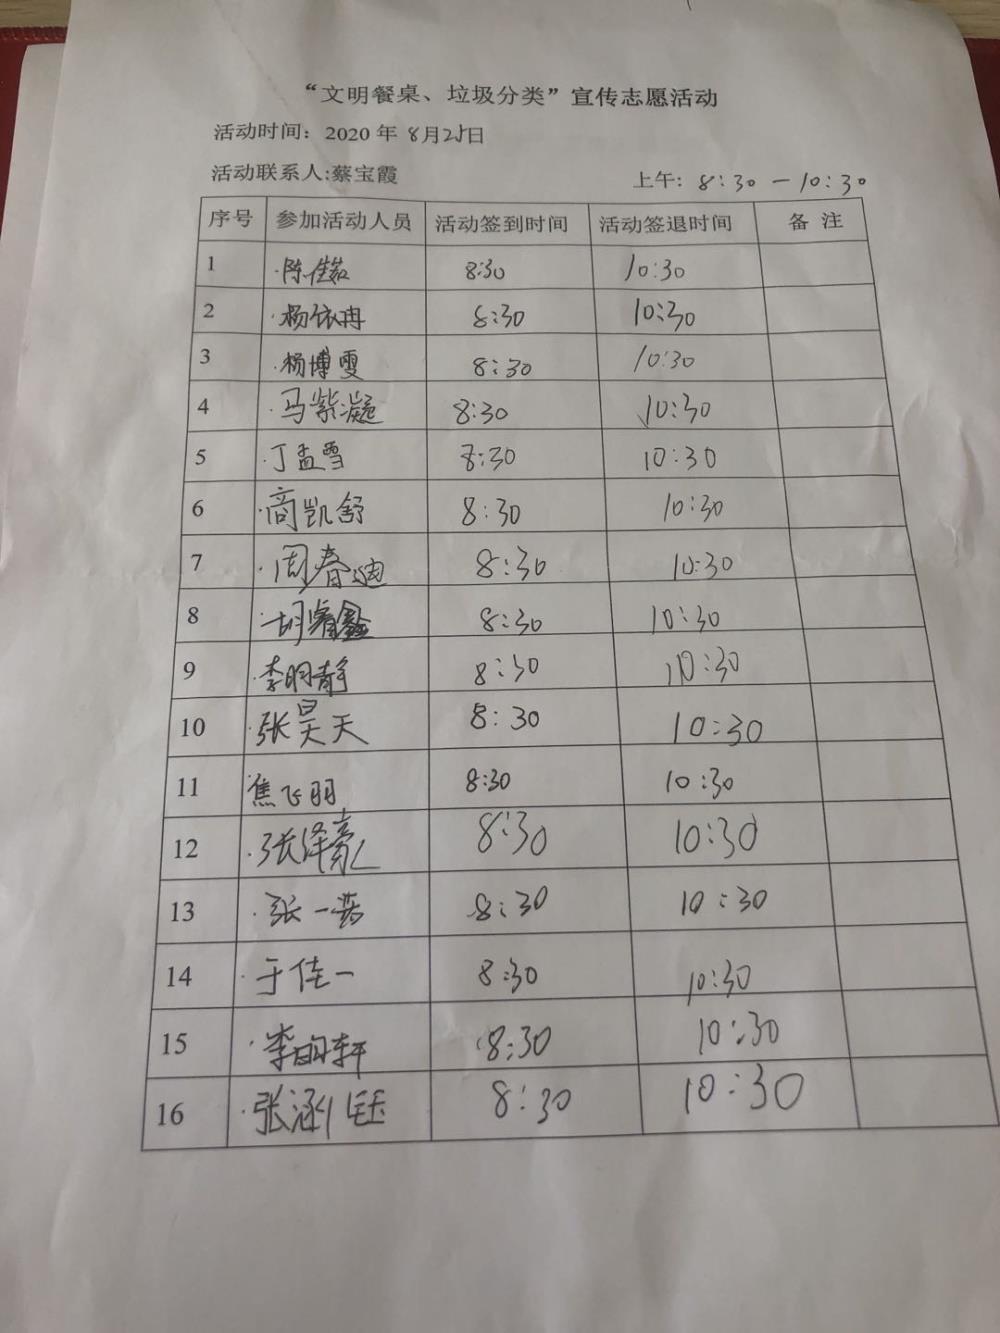 “文明餐桌、垃圾分类”宣传志愿活动
活动时间：2020 年 8月25日
活动联系人:蔡宝霞
上午：8:30 — 10:30
序号 参加活动人员 活动签到时间 活动签退时间 备 注
1 陈佳茹 8:30 10:30
2 杨依冉 8:30 10:30
3 杨博雯 8:30 10:30
4 马紫凝 8:30 10:30
5 丁孟雪 8:30 10:30
6 商凯舒 8:30 10:30
7 周春迪 8:30 10:30
8 胡睿鑫 8:30 10:30
9 李明静 8:30 10:30
10 张昊天 8:30 10:30
11 焦飞羽 8:30 10:30
12 张泽豪 8:30 10:30
13 张一 8:30 10:30
14 于佳一 8:30 10:30
15 李明轩 8:30 10:30
16 张涵钰 8:30 10:30